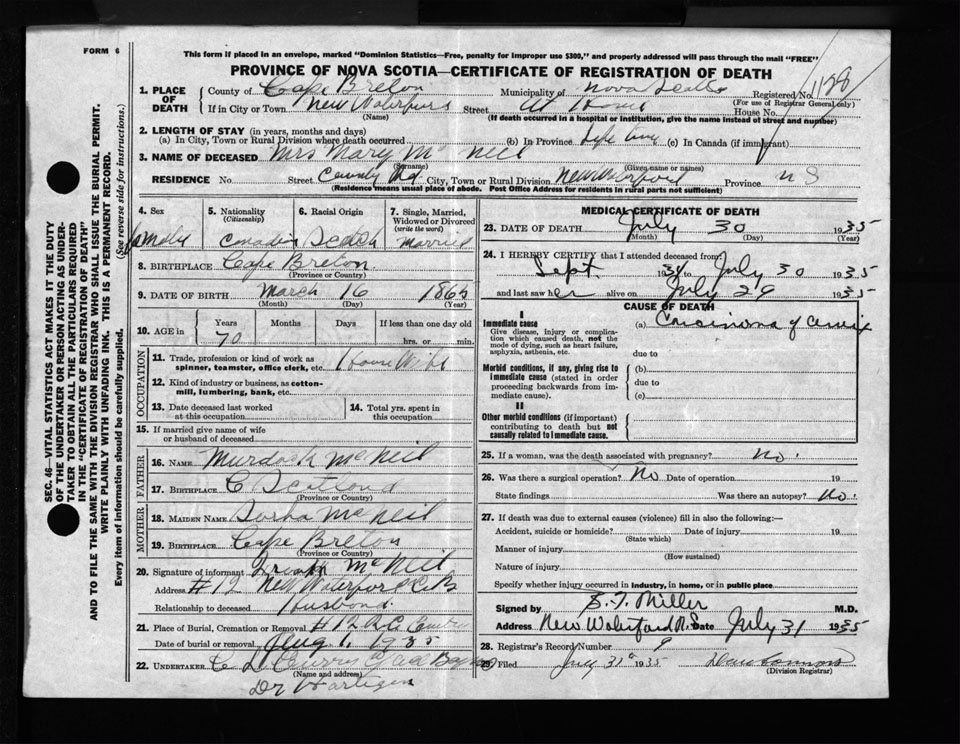 FORM 6
This form if placed in an envelope, marked "Dominion Statistics—Free, penalty for improper use $300," and properly addressed will pass through the mail "FREE"
PROVINCE OF NOVA SCOTIA—CERTIFICATE OF REGISTRATION OF DEATH
1. PLACE OF DEATH
County of Cape Breton Municipality of Nova Scotia Registered No. 1128
(For use of Registrar General only)
If in City or Town New Waterford Street At Home House No.
(Name)
(If death occurred in a hospital or institution, give the name instead of street and number)
2. LENGTH OF STAY (in years, months and days)
(a) In City, Town or Rural Division where death occurred (b) In Province Life time (c) In Canada (if immigrant)
3. NAME OF DECEASED Mrs Mary Mc Neil
(Surname) (Given name or names)
RESIDENCE No. Street County Rd City, Town or Rural Division New Waterford Province N S
(Residence means usual place of abode. Post Office Address for residents in rural parts not sufficient)
4. Sex
female
5. Nationality
(Citizenship)
Canadian
6. Racial Origin
Scotch
7. Single, Married, Widowed or Divorced
(write the word)
Married
8. BIRTHPLACE Cape Breton
(Province or Country)
9. DATE OF BIRTH March 16 1865
(Month) (Day) (Year)
10. AGE in
Years Months Days If less than one day old
70 hrs. or min.
OCCUPATION
11. Trade, profession or kind of work as spinner, teamster, office clerk, etc. House Wife
12. Kind of industry or business, as cotton-mill, lumbering, bank, etc.
13. Date deceased last worked at this occupation
14. Total yrs. spent in this occupation
15. If married give name of wife or husband of deceased
FATHER
16. NAME Murdoch McNeil
17. BIRTHPLACE Scotland
(Province or Country)
MOTHER
18. MAIDEN NAME McNeil
19. BIRTHPLACE Cape Breton
(Province or Country)
20. Signature of informant McNeil
Address #12 New Waterford C B
Relationship to deceased Husband
21. Place of Burial, Cremation or Removal #12 R.C.
Date of burial or removal Aug 1, 1935
22. UNDERTAKER Curry
(Name and address)
Dr Hartigan
MEDICAL CERTIFICATE OF DEATH
23. DATE OF DEATH July 30 1935
(Month) (Day) (Year)
24. I HEREBY CERTIFY that I attended deceased from:
Sept. 1934 to July 30 1935
and last saw her alive on July 29 1935
CAUSE OF DEATH
I
Immediate cause
Give disease, injury or complication which caused death, not the mode of dying, such as heart failure, asphyxia, asthenia, etc.
(a) Carcinoma of cervix
due to
Morbid conditions, if any, giving rise to immediate cause (stated in order proceeding backwards from immediate cause).
(b)
due to
(c)
II
Other morbid conditions (if important) contributing to death but not causally related to immediate cause.
25. If a woman, was the death associated with pregnancy? no.
26. Was there a surgical operation? No Date of operation 19
State findings Was there an autopsy? no.
27. If death was due to external causes (violence) fill in also the following:—
Accident, suicide or homicide? Date of injury 19
(State which)
Manner of injury
(How sustained)
Nature of injury
Specify whether injury occurred in industry, in home, or in public place
Signed by S. T. Miller M.D.
Address New Waterford N.S. Date July 31 1935
28. Registrar's Record Number 9
29. Filed July 31st 1935
(Division Registrar)
SEC. 46—VITAL STATISTICS ACT MAKES IT THE DUTY
OF THE UNDERTAKER OR PERSON ACTING AS UNDER-
TAKER "TO OBTAIN ALL THE PARTICULARS REQUIRED
IN THE "CERTIFICATE OF REGISTRATION OF DEATH"
AND TO FILE THE SAME WITH THE DIVISION REGISTRAR WHO SHALL ISSUE THE BURIAL PERMIT.
WRITE PLAINLY WITH UNFADING INK. THIS IS A PERMANENT RECORD.
Every item of information should be carefully supplied. (See reverse side for instructions.)